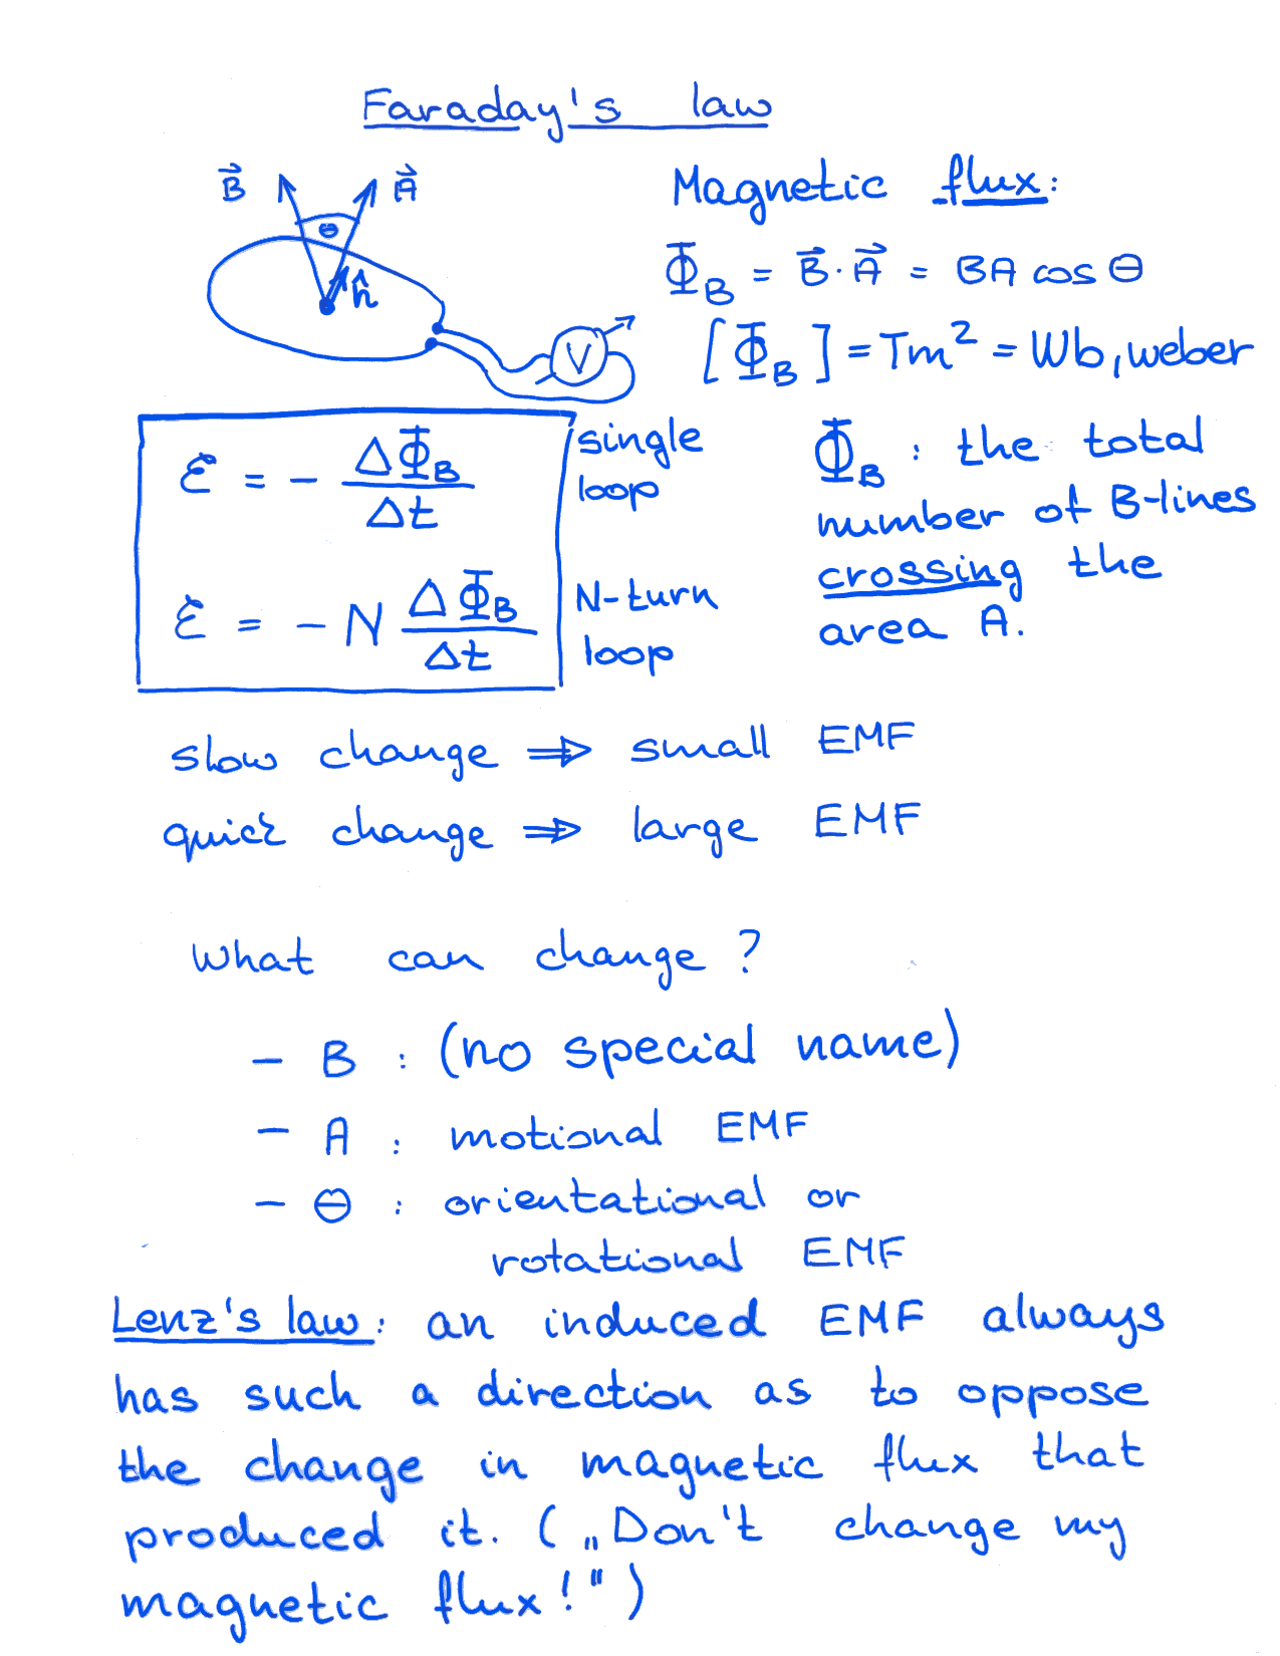 Faraday's law
B⃗ A⃗
θ
n̂
V
Magnetic flux:
Φ_B = B⃗·A⃗ = BA cos θ
[Φ_B] = Tm² = Wb, weber
ℰ = - ΔΦ_B / Δt single loop
ℰ = -N ΔΦ_B / Δt N-turn loop
Φ_B : the total
number of B-lines
crossing the
area A.
slow change ⇒ small EMF
quick change ⇒ large EMF
What can change?
- B : (no special name)
- A : motional EMF
- θ : orientational or
rotational EMF
Lenz's law: an induced EMF always
has such a direction as to oppose
the change in magnetic flux that
produced it. („Don't change my
magnetic flux!")